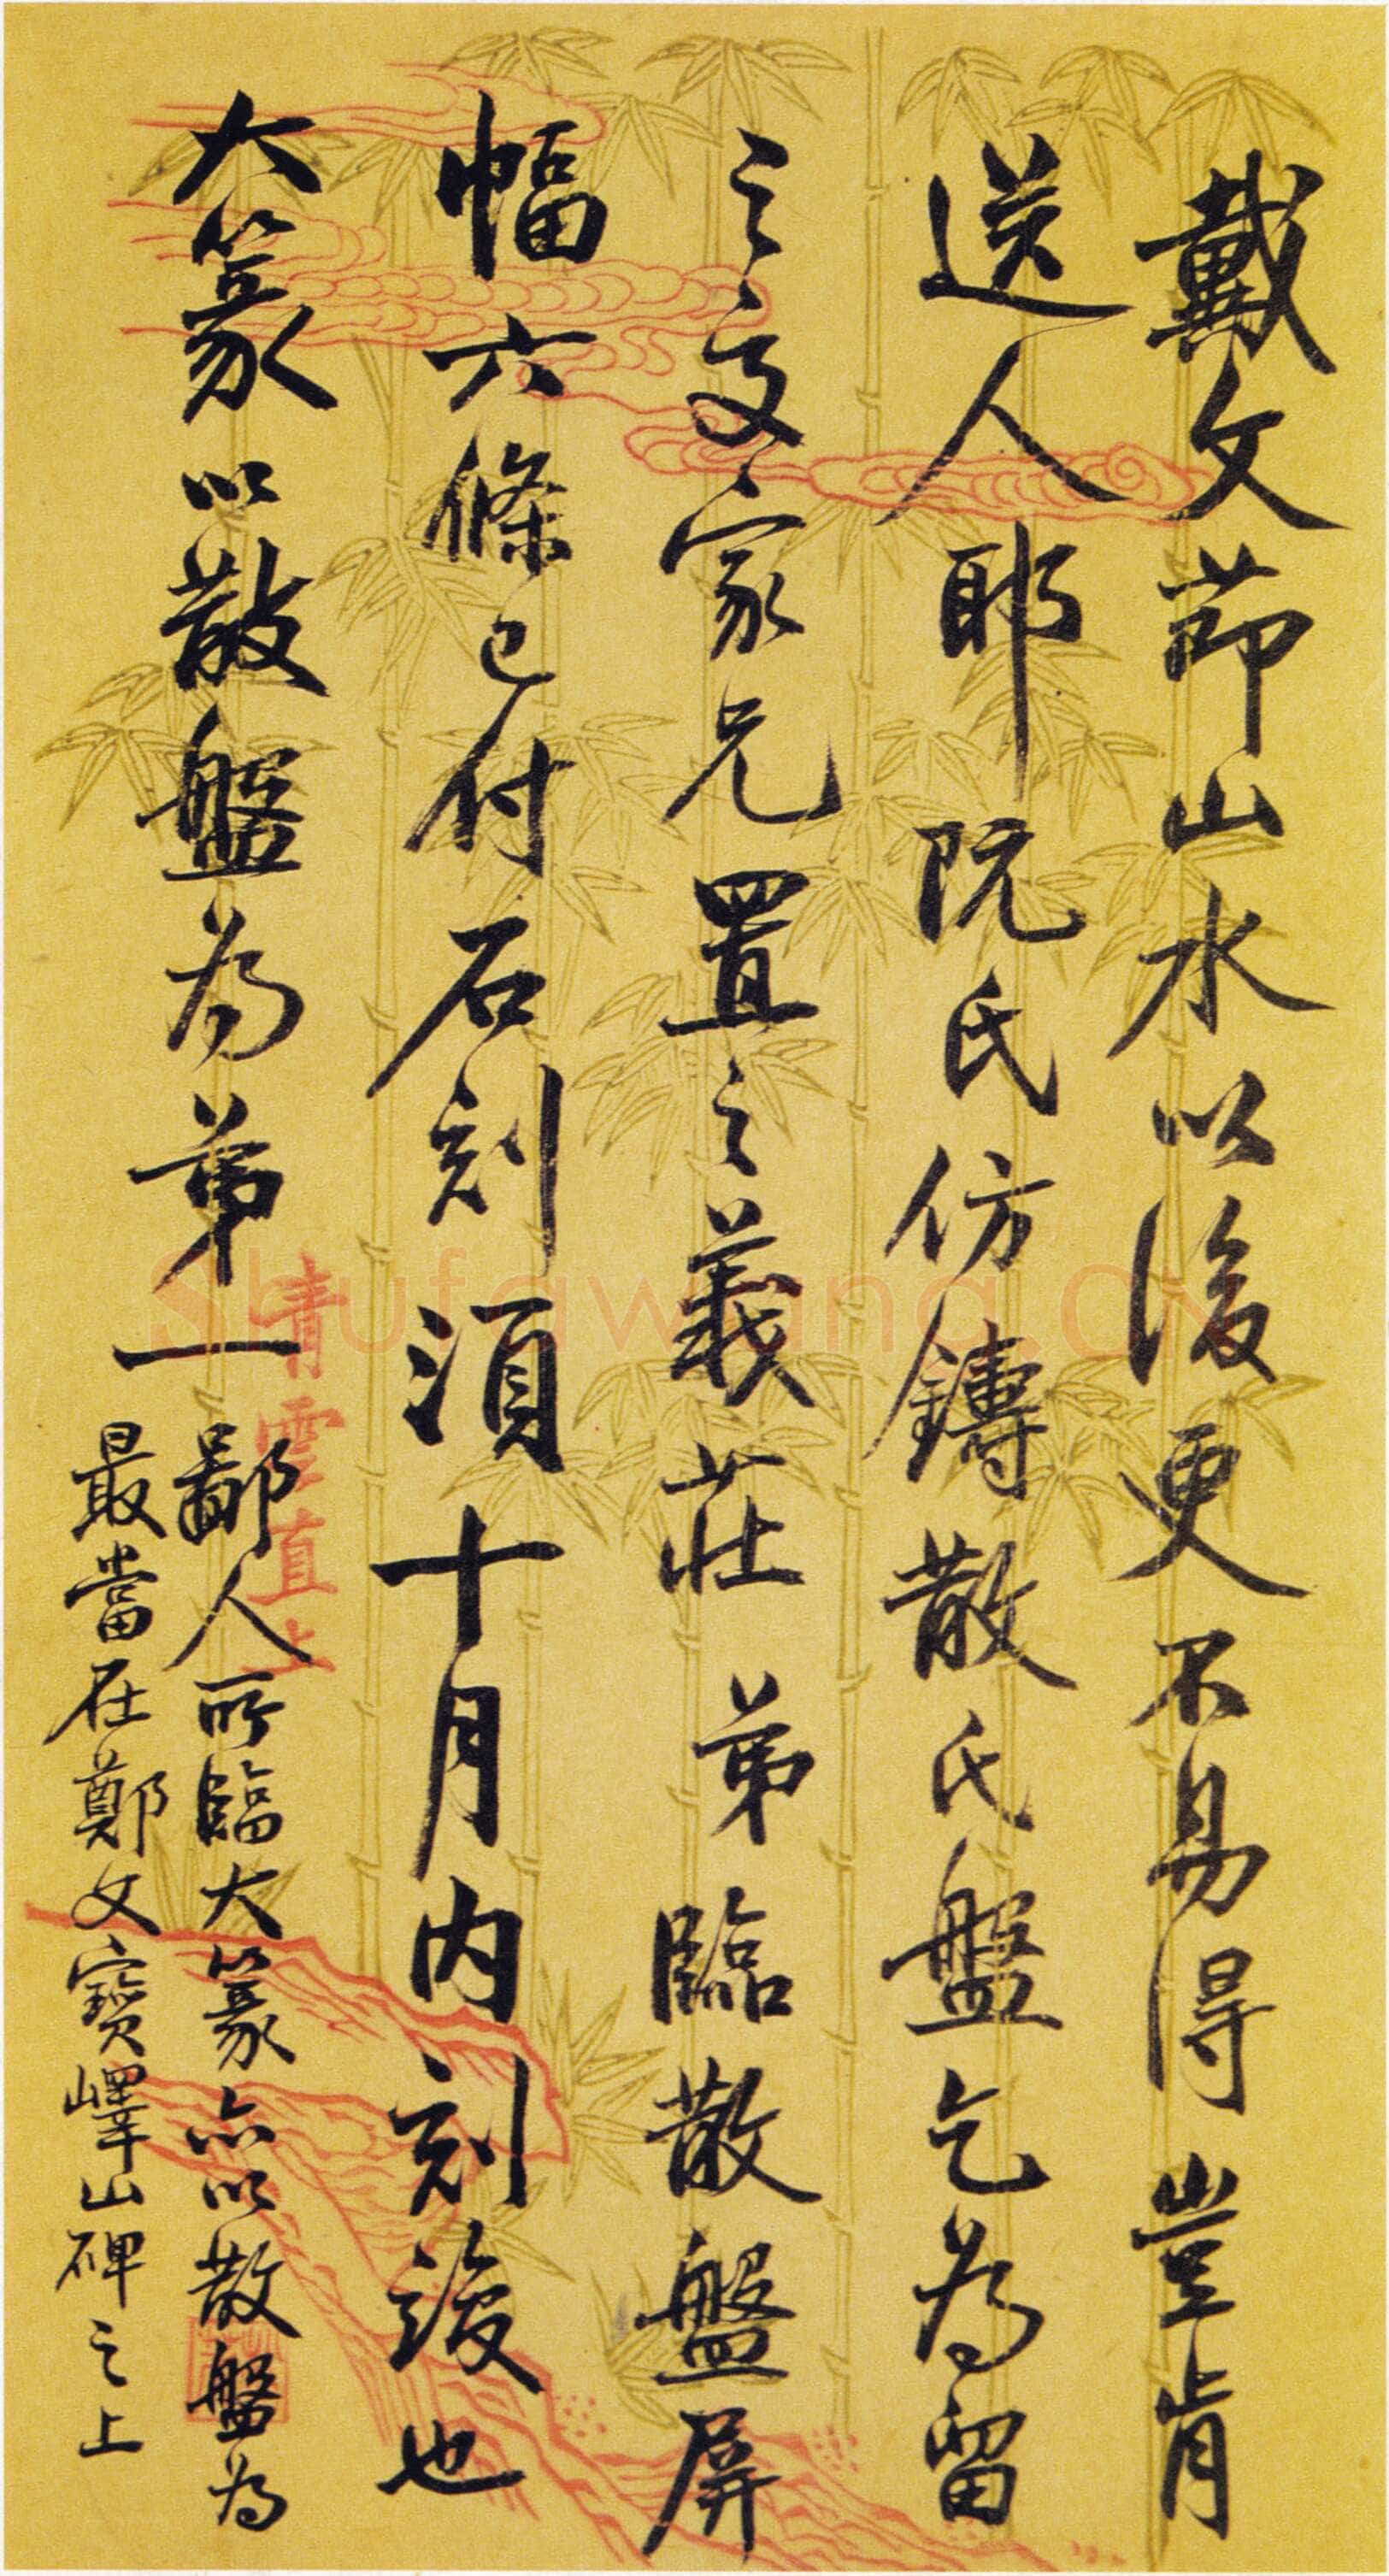 戴文節山水以後更不易得豈肯
送人耶阮氏仿鑄散氏盤乞為留
之文家兄置之義莊弟臨散盤屏
幅六條已付石刻須十月內刻竣也
大篆以散盤為第一
鄙人所臨大篆亦以散盤為
最當在鄭文寶嶧山碑之上
青雲直上
Shufawang.cn